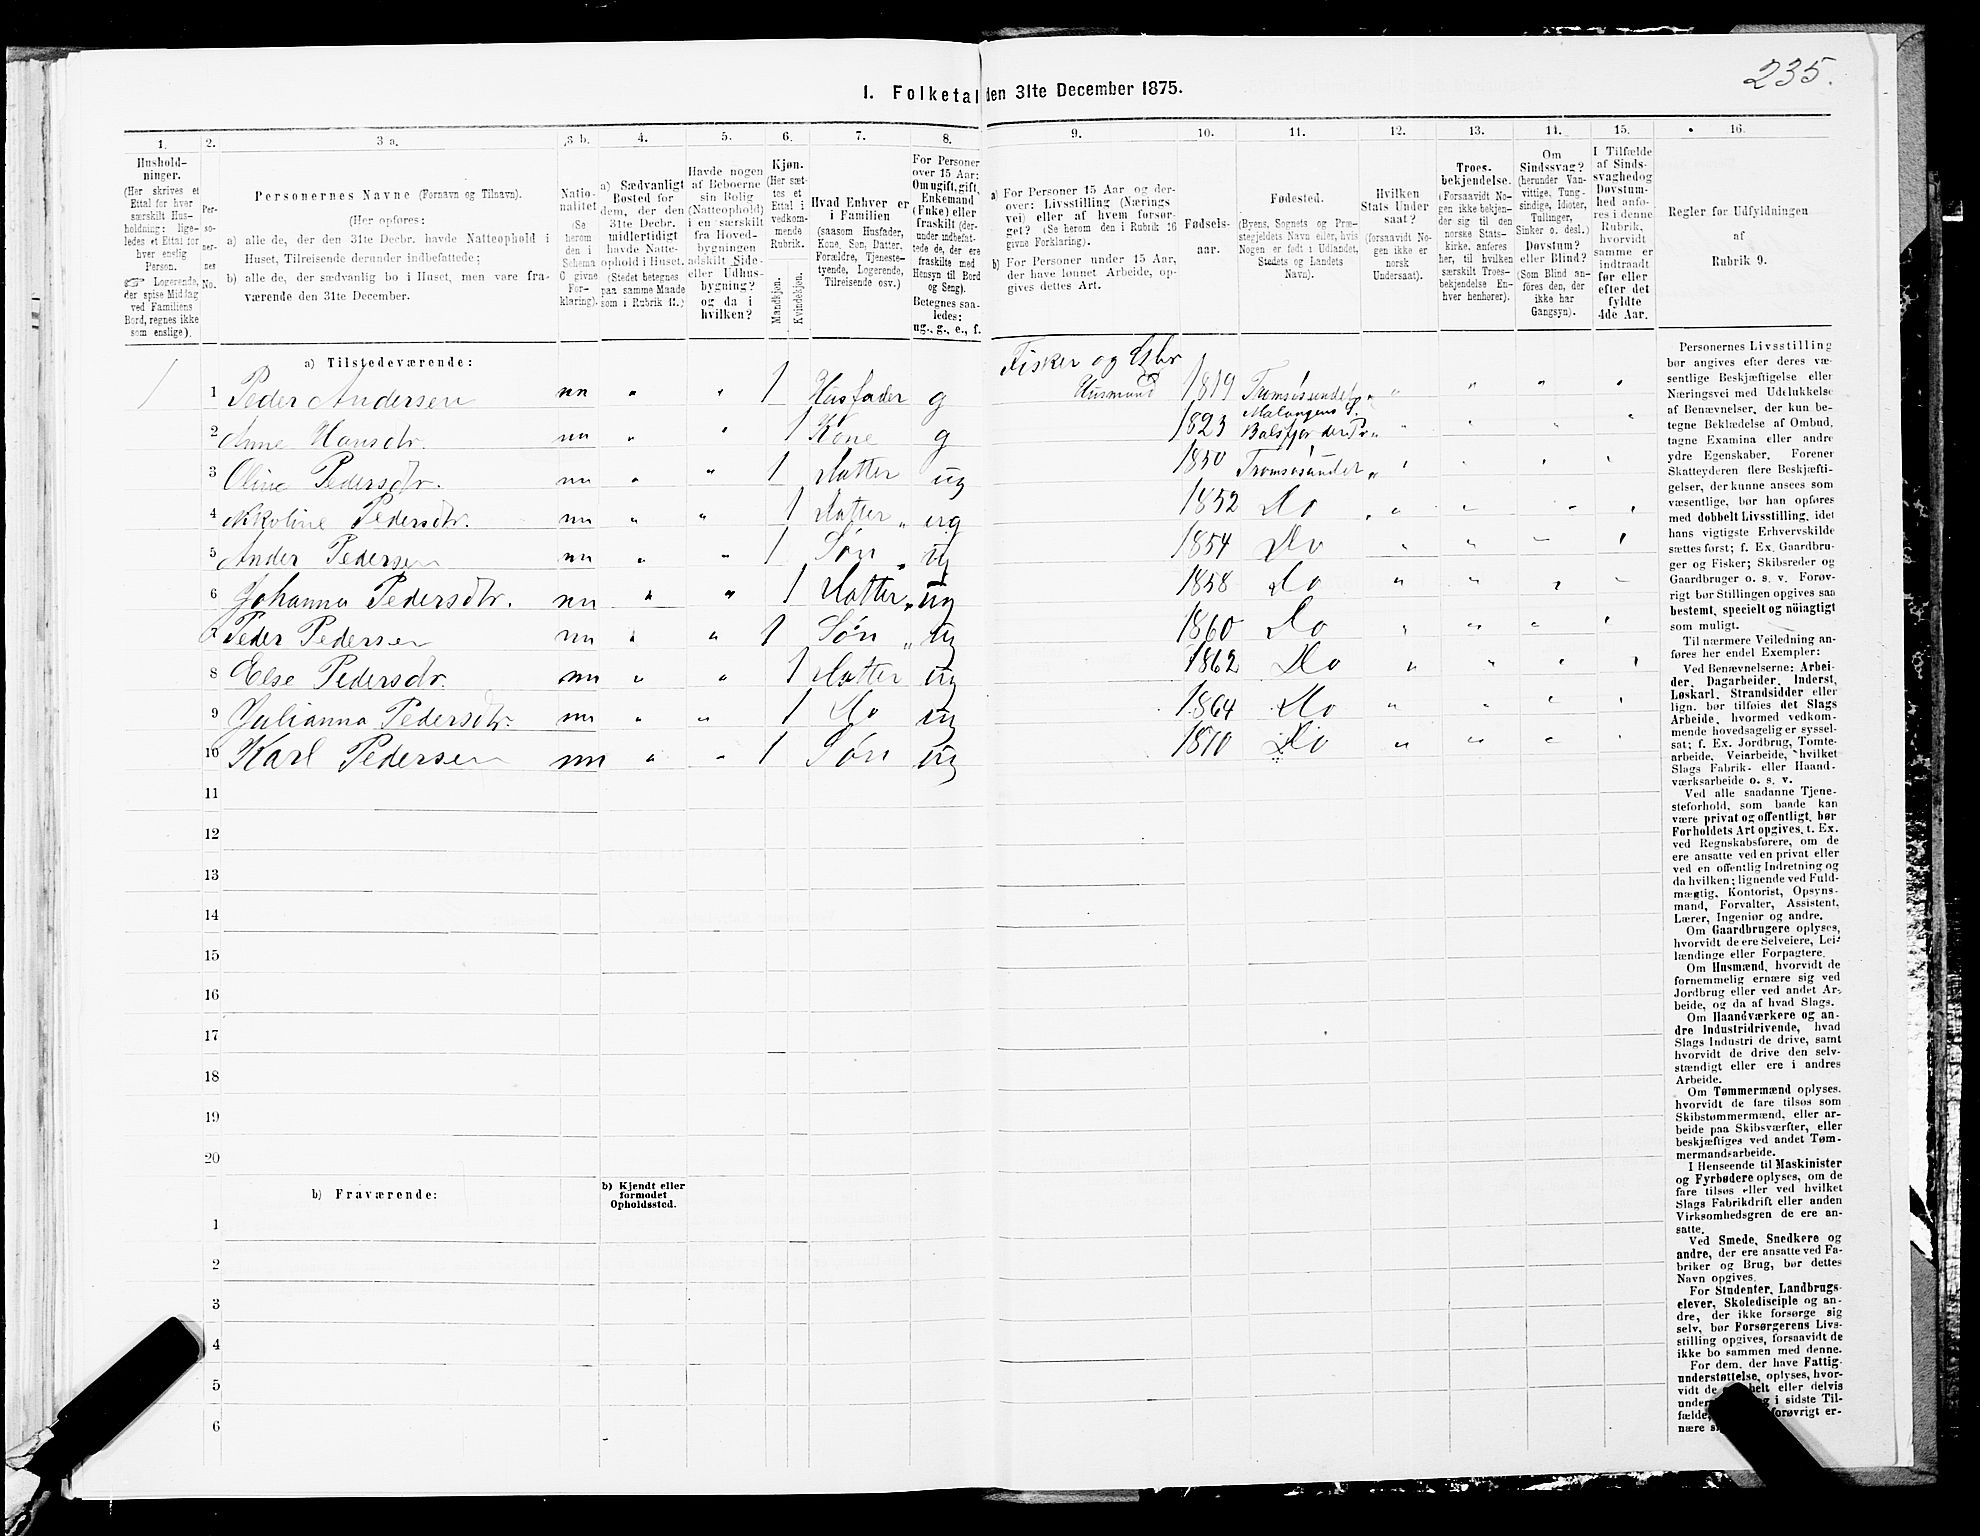 235.
1. Folketal den 31te December 1875.
1. 2. 3 a. 3 b. 4. 5. 6. 7. 8. 9. 10. 11. 12. 13. 14. 15. 16.
Hushold-
ninger.
(Her skrives et
Ettal for hver
særskilt Hus-
holdning; lige-
ledes et Ettal for
hver enslig
Person.
☞ Logerende,
der spise Middag
ved Familiens
Bord, regnes ikke
som enslige).
Per-
so-
ner-
nes
No.
Personernes Navne (Fornavn og Tilnavn).
(Her opføres:
a) alle de, der den 31te Decbr. havde Natteophold i
Huset, Tilreisende derunder indbefattede;
b) alle de, der sædvanlig bo i Huset, men vare fra-
værende den 31te December.
Natio-
nalitet
(Se
herom
den i
Schema
C givne
For-
klaring).
a) Sædvanligt
Bosted for
dem, der den
31te Decbr.
midlertidigt
havde Natte-
ophold i Huset.
(Stedet betegnes
paa samme Maade
som i Rubrik 11.)
Havde nogen
af Beboerne
sin Bolig
(Natteophold)
i en særskilt
fra Hoved-
bygningen
adskilt Side-
eller Udhus-
bygning?
og da i
hvilken?
Kjøn.
(Her sæt-
tes et
Ettal i
vedkom-
mende
Rubrik.
Mandkjøn.
Kvindekjøn.
Hvad Enhver er
i Familien
(saasom Husfader,
Kone, Søn, Datter,
Forældre, Tjeneste-
tyende, Logerende,
Tilreisende osv.)
For Personer
over 15 Aar:
Om ugift, gift,
Enkemand
(Enke) eller
fraskilt (der-
under indbefat-
tede de, der ere
fraskilte med
Hensyn til Bord
og Seng).
Betegnes saa-
ledes:
ug., g., e., f.
a) For Personer 15 Aar og der-
over: Livsstilling (Nærings-
vei) eller af hvem forsør-
get? (Se herom den i Rubrik 16
givne Forklaring).
b) For Personer under 15 Aar,
der have lønnet Arbeide, op-
gives dettes Art.
Fødsels-
aar.
Fødested.
(Byens, Sognets og Præ-
stegjeldets Navn eller, hvis
Nogen er født i Udlandet,
Stedets og Landets
Navn).
Hvilken
Stats Under
saat?
(forsaavidt No-
gen ikke er
norsk
Undersaat).
Troes-
bekjendelse.
(Forsaavidt No-
gen ikke bekjen-
der sig til den
norske Stats-
kirke, anføres
her, til hvilken
særskilt Troes-
bekjendelse En-
hver henhører).
Om
Sindssvag?
(herunder Van-
vittige, Tung-
sindige, Idioter,
Tullinger,
Sinker o. desl.)
Døvstum?
eller Blind?
(Som Blind an-
føres den, der
ikke har
Gangsyn).
I Tilfælde
af Sinds-
svaghed og
Døvstum-
hed anfø-
res i denne
Rubrik,
hvorvidt
samme er
indtraadt
før eller
efter det
fyldte
4de Aar.
Regler for Udfyldningen
af
Rubrik 9.
a) Tilstedeværende: Fisker og
1 1 Peder Andersen nn " " 1 Husfader g Husmand 1819 Tromsøsundet " " " "
Malangens S.
2 Anne Hansdtr. nn " " 1 Kone g 1823 Balsfjorden Pr " " " "
3 Oline Pedersdtr. nn " " 1 Datter ug 1850 Tromsøsundet " " " "
4 Nikoline Pedersdtr. nn " " 1 Datter ug 1852 Do " " " "
5 Ander Pedersen nn " " 1 Søn ug 1854 Do " " " "
6 Johanna Pedersdtr. nn " " 1 Datter ug 1858 Do " " " "
7 Peder Pedersen nn " " 1 Søn ug 1860 Do " " " "
8 Else Pedersdtr. nn " " 1 Datter ug 1862 Do " " " "
9 Julianna Pedersdtr. nn " " 1 Do ug 1864 Do " " " "
10 Karl Pedersen nn " " 1 Søn ug 1870 Do " " " "
11
12
13
14
15
16
17
18
19
20
b) Fraværende: b) Kjendt eller
formodet
Opholdssted.
1
2
3
4
5
6
Personernes Livsstilling
bør angives efter deres væ-
sentlige Beskjæftigelse eller
Næringsvei med Udelukkelse
af Benævnelser, der kun be-
tegne Beklædelse af Ombud,
tagne Examina eller andre
ydre Egenskaber. Forener
Skatteyderen flere Beskjæfti-
gelser, der kunne ansees som
væsentlige, bør han opføres
med dobbelt Livsstilling, idet
hans vigtigste Erhvervskilde
sættes først; f. Ex. Gaardbru-
ger og Fisker; Skibsreder og
Gaardbruger o. s. v. Forøv-
rigt bør Stillingen opgives saa
bestemt, specielt og nöiagtigt
som muligt.
Til nærmere Veiledning an-
føres her endel Exempler:
Ved Benævnelserne: Arbei-
der, Dagarbeider, Inderst,
Løskarl, Strandsidder eller
lign. bør tilføies det Slags
Arbeide, hvormed vedkom-
mende hovedsagelig er syssel-
sat; f. Ex. Jordbrug, Tomte-
arbeide, Veiarbeide, hvilket
Slags Fabrik- eller Haand-
værksarbeide o. s. v.
Ved alle saadanne Tjene-
steforhold, som baade kan
være privat og offentligt, bør
Forholdets Art opgives, t. Ex.
ved Regnskabsførere, om de
ere ansatte ved en privat eller
ved en offentlig Indretning og
da hvilken; lignende ved Fuld-
mægtig, Kontorist, Opsyns-
mand, Forvalter, Assistent,
Lærer, Ingeniør og andre.
Om Gaardbrugere oplyses,
hvorvidt de ere Selveiere, Lei-
lændinge eller Forpagtere.
Om Husmænd, hvorvidt de
fornemmelig ernære sig ved
Jordbrug eller ved andet Ar-
beide, og da af hvad Slags.
Om Haandværkere og an-
dre Industridrivende, hvad
Slags Industri de drive, samt
hvorvidt de drive den selv-
stændigt eller ere i andres
Arbeide.
Om Tømmermænd oplyses,
hvorvidt de fare tilsøs som
Skibstømmermænd, eller ar-
beide paa Skibsværfter, eller
beskjæftiges ved andet Tøm-
mermandsarbeide.
I Henseende til Maskinister
og Fyrbødere oplyses, om de
fare tilsøs eller ved hvilket
Slags Fabrikdrift eller anden
Virksomhedsgren de ere an-
satte.
Ved Smede, Snedkere og
andre, der ere ansatte ved Fa-
briker og Brug, bør dettes
Navn opgives.
For Studenter, Landbrugs-
elever, Skoledisciple og an-
dre, der ikke forsørge sig
selv, bør Forsørgerens Livs-
stilling opgives, forsaavidt de
ikke bo sammen med denne.
For dem, der have Fattig-
understøttelse, oplyses, hvor-
vidt de helt eller delvis
under i sidste Til-
fælde, forøvrigt er-
nære